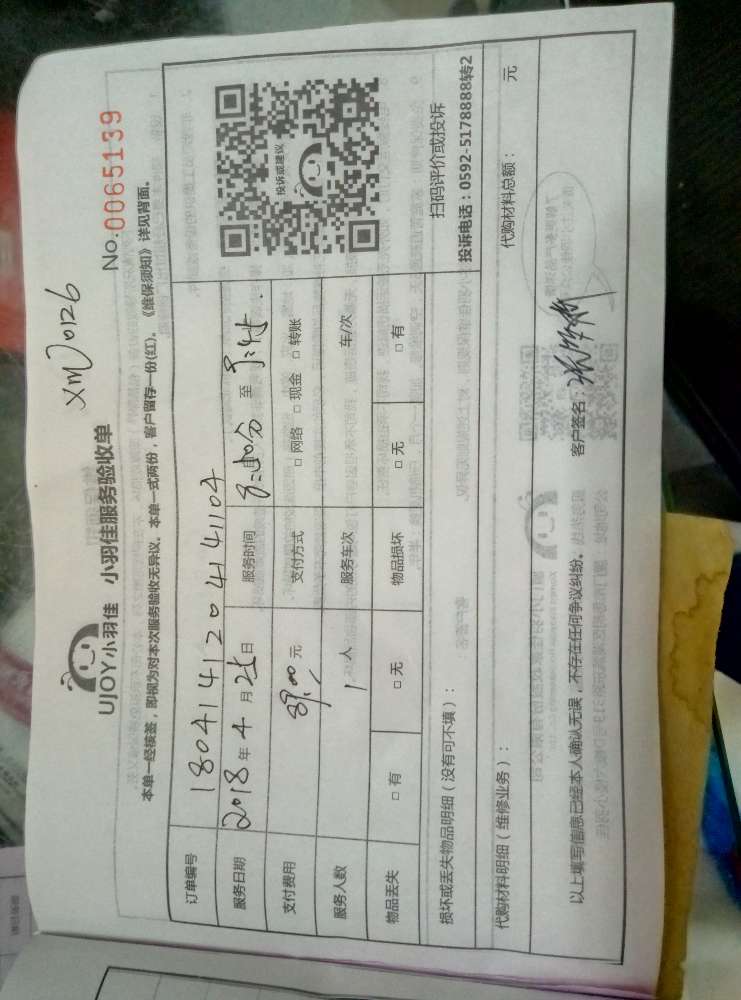 XMJ0126
UJOY小羽佳 小羽佳服务验收单
No.0065139
本单一经核签，即视为对本次服务验收无异议。本单一式两份，客户留存一份(红)。《维保须知》详见背面。
订单编号 1804141204141104
服务日期 2018年4月25日 服务时间 8:30分 至
支付费用 89.00元 支付方式 □网络 □现金 □转账
服务人数 1人 服务车次 车/次
物品丢失 □有 □无 物品损坏 □无 □有
投诉或建议
扫码评价或投诉
投诉电话：0592-5178888转2
损坏或丢失物品明细（没有可不填）：
代购材料明细（维修业务）： 代购材料总额： 元
以上填写信息已经本人确认无误，不存在任何争议纠纷。 客户签名：